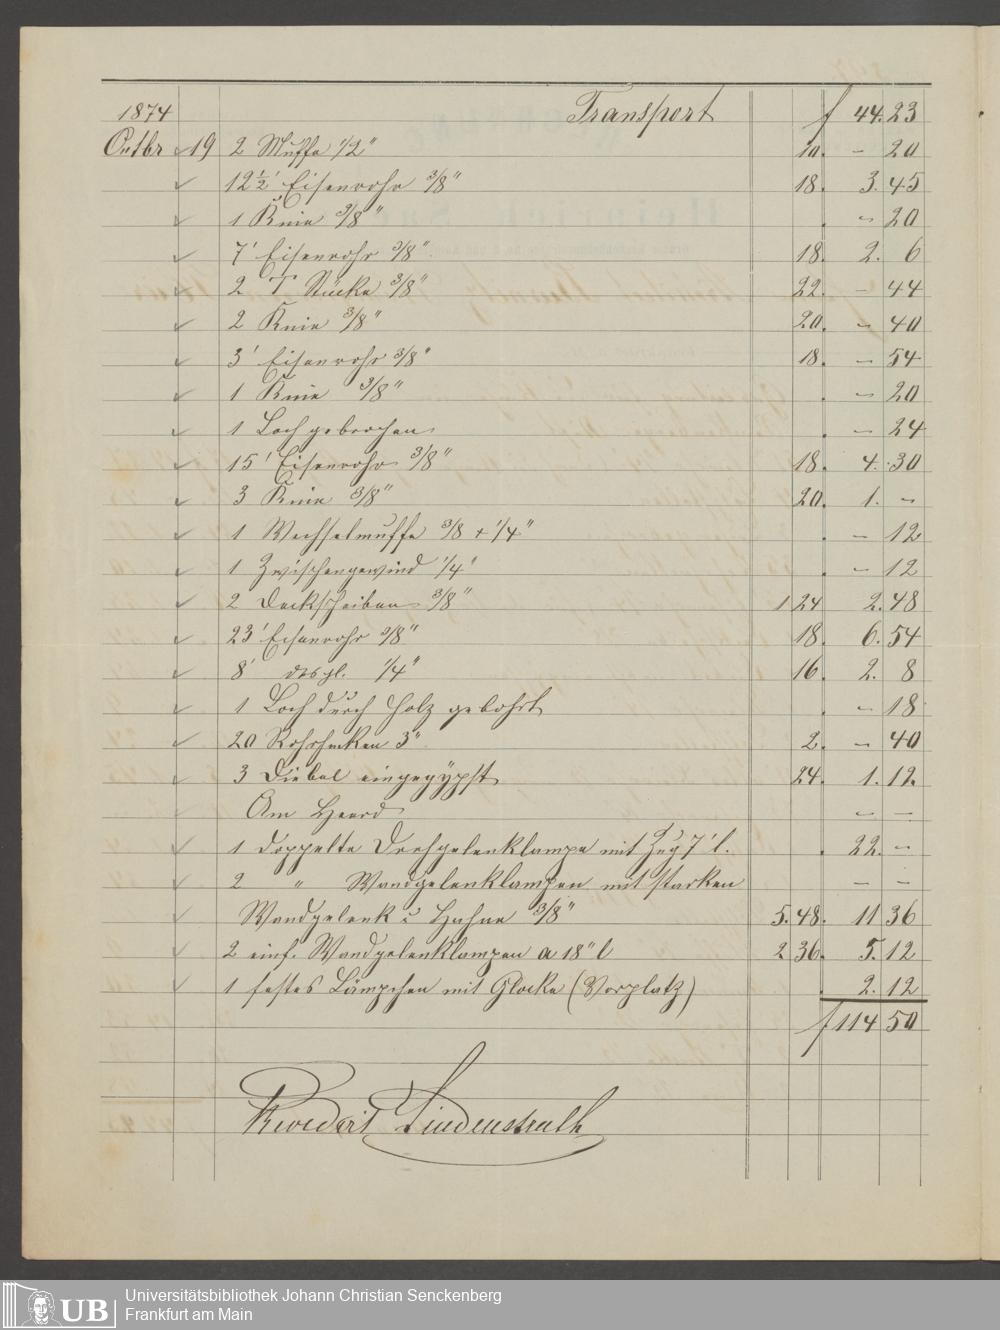 1874 Transport f 44.23
Octbr 19 2 Muffe 1/2" 10. – 20
12 1/2' Eisenrohr 3/8" 18. 3.45
1 Knie 3/8" . – 20
7' Eisenrohr 3/8" 18. 2. 6
2 T Stücke 3/8" 22. – 44
2 Knie 3/8" 20. – 40
3' Eisenrohr 3/8" 18. – 54
1 Knie 3/8" . – 20
1 Loch gebrochen . – 24
15' Eisenrohr 3/8" 18. 4.30
3 Knie 3/8" 20. 1. –
1 Wechselmuffe 3/8 + 1/4" . – 12
1 Zwischengewind 1/4" . – 12
2 Deckscheiben 3/8" 1 24 2.48
23' Eisenrohr 3/8" 18. 6.54
8' desgl. 1/4" 16. 2. 8
1 Loch durch Holz gebohrt . – 18
20 Rohrhaken 3" 2. – 40
3 Diebel eingegypst 24. 1.12.
Am Heerd – –
1 doppelte Drehgelenklampe mit Zug 7' l. . 22. –
2 " Wandgelenklampen mit starken – –
Wandgelenk u Hahne 3/8" 5.48. 11 36
2 einf. Wandgelenklampen a 18" l 2 36. 5.12
1 festes Lämpchen mit Glocke (Vorplatz) . 2.12
f 114 50
Revedirt Lindenstruth
UB
Universitätsbibliothek Johann Christian Senckenberg
Frankfurt am Main